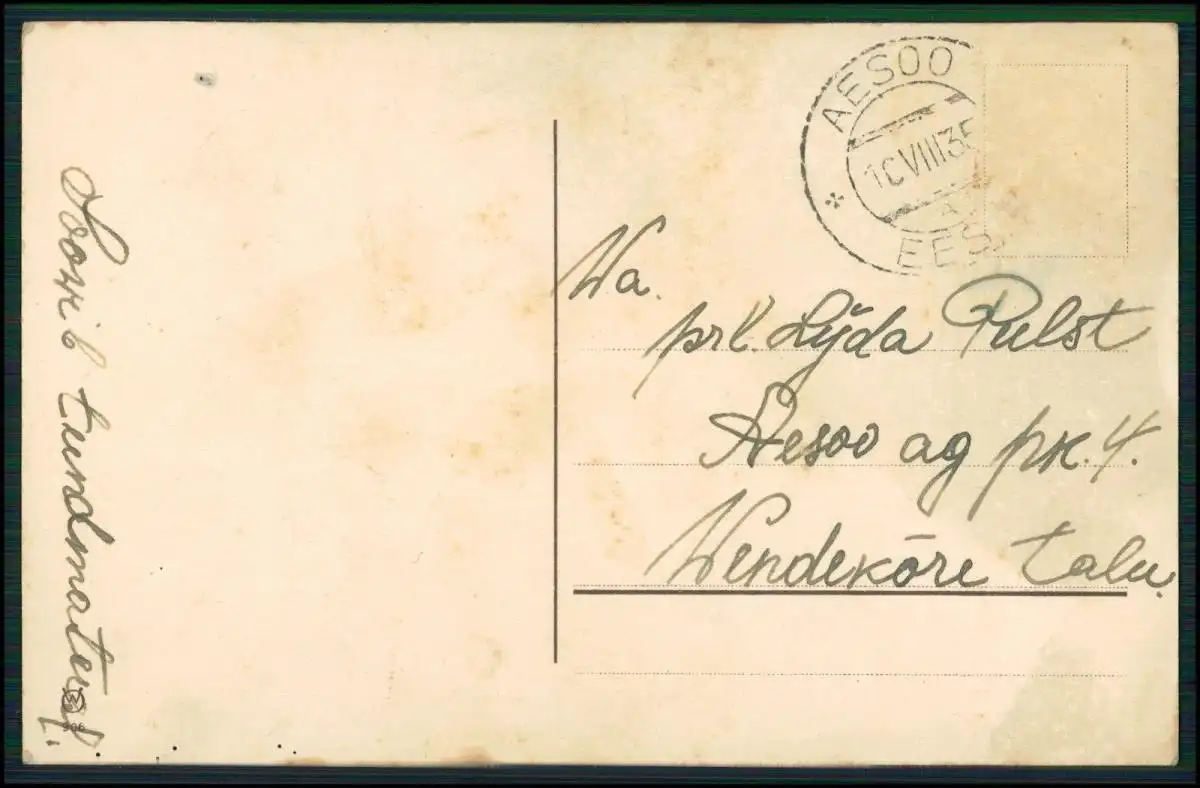 Soovib tundmatu!
AESOO
10 VIII 35
A
EES
Wa.
prl. Lyda Pulst
Aesoo ag pk. 4.
Wendekõre talu.
906